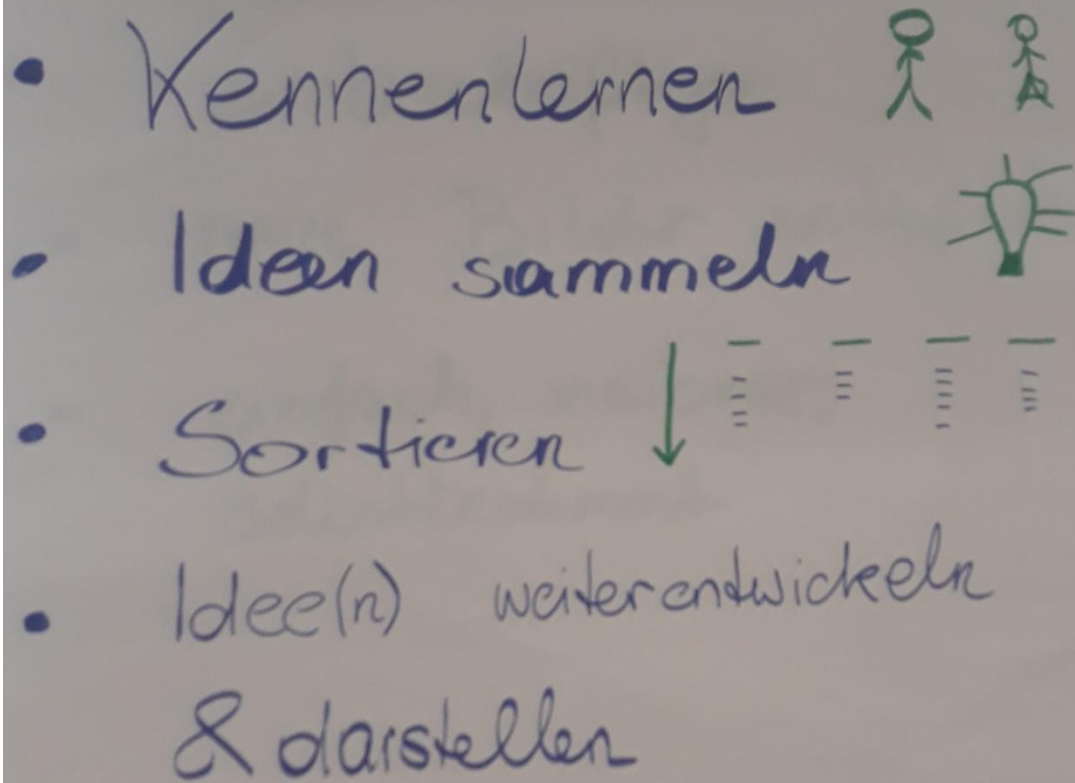 • Kennenlernen
• Ideen sammeln
• Sortieren
• Idee(n) weiterentwickeln
& darstellen